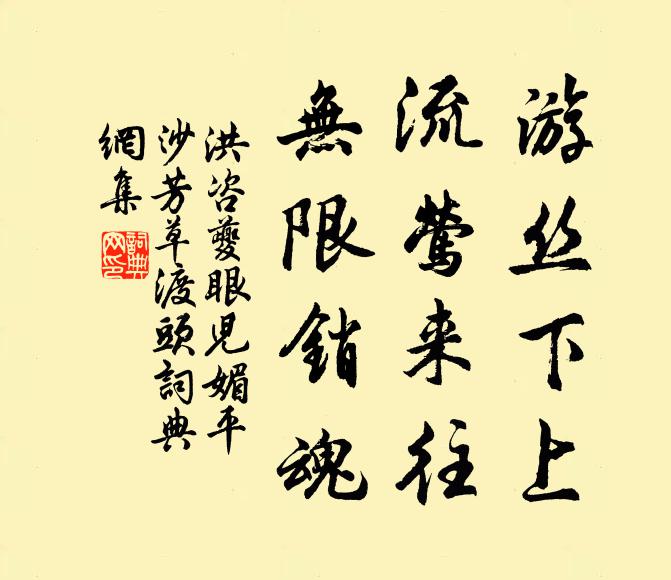 游丝下上
流莺来往
無限銷魂
洪咨夔眼児媚平
沙芳草渡頭詞典
網集
詞典网印